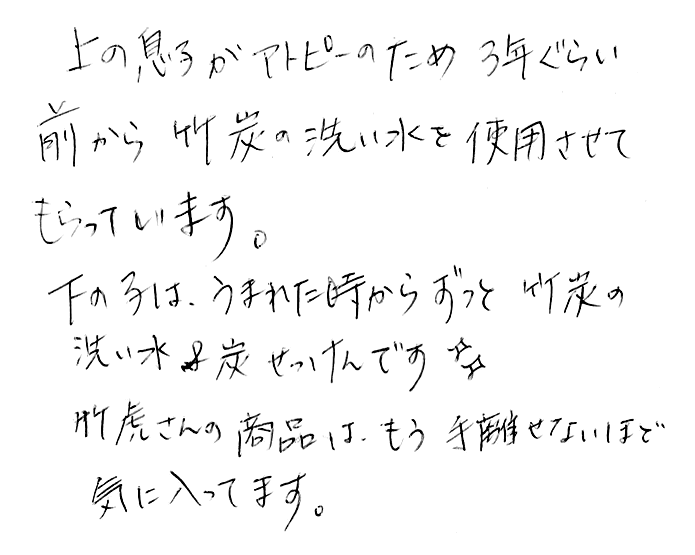 上の息子がアトピーのため 3年ぐらい
前から 竹炭の洗い水を使用させて
もらっています。
下の子は、うまれた時からずっと 竹炭の
洗い水&炭せっけんです☆☆
竹虎さんの商品は、もう手離せないほど
気に入ってます。